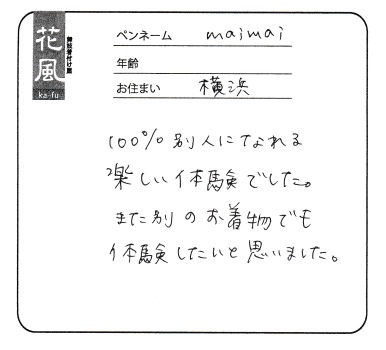 花風
ka-fu
ペンネーム maimai
年齢
お住まい 横浜
100%別人になれる
楽しい体験でした。
また別のお着物でも
体験したいと思いました。